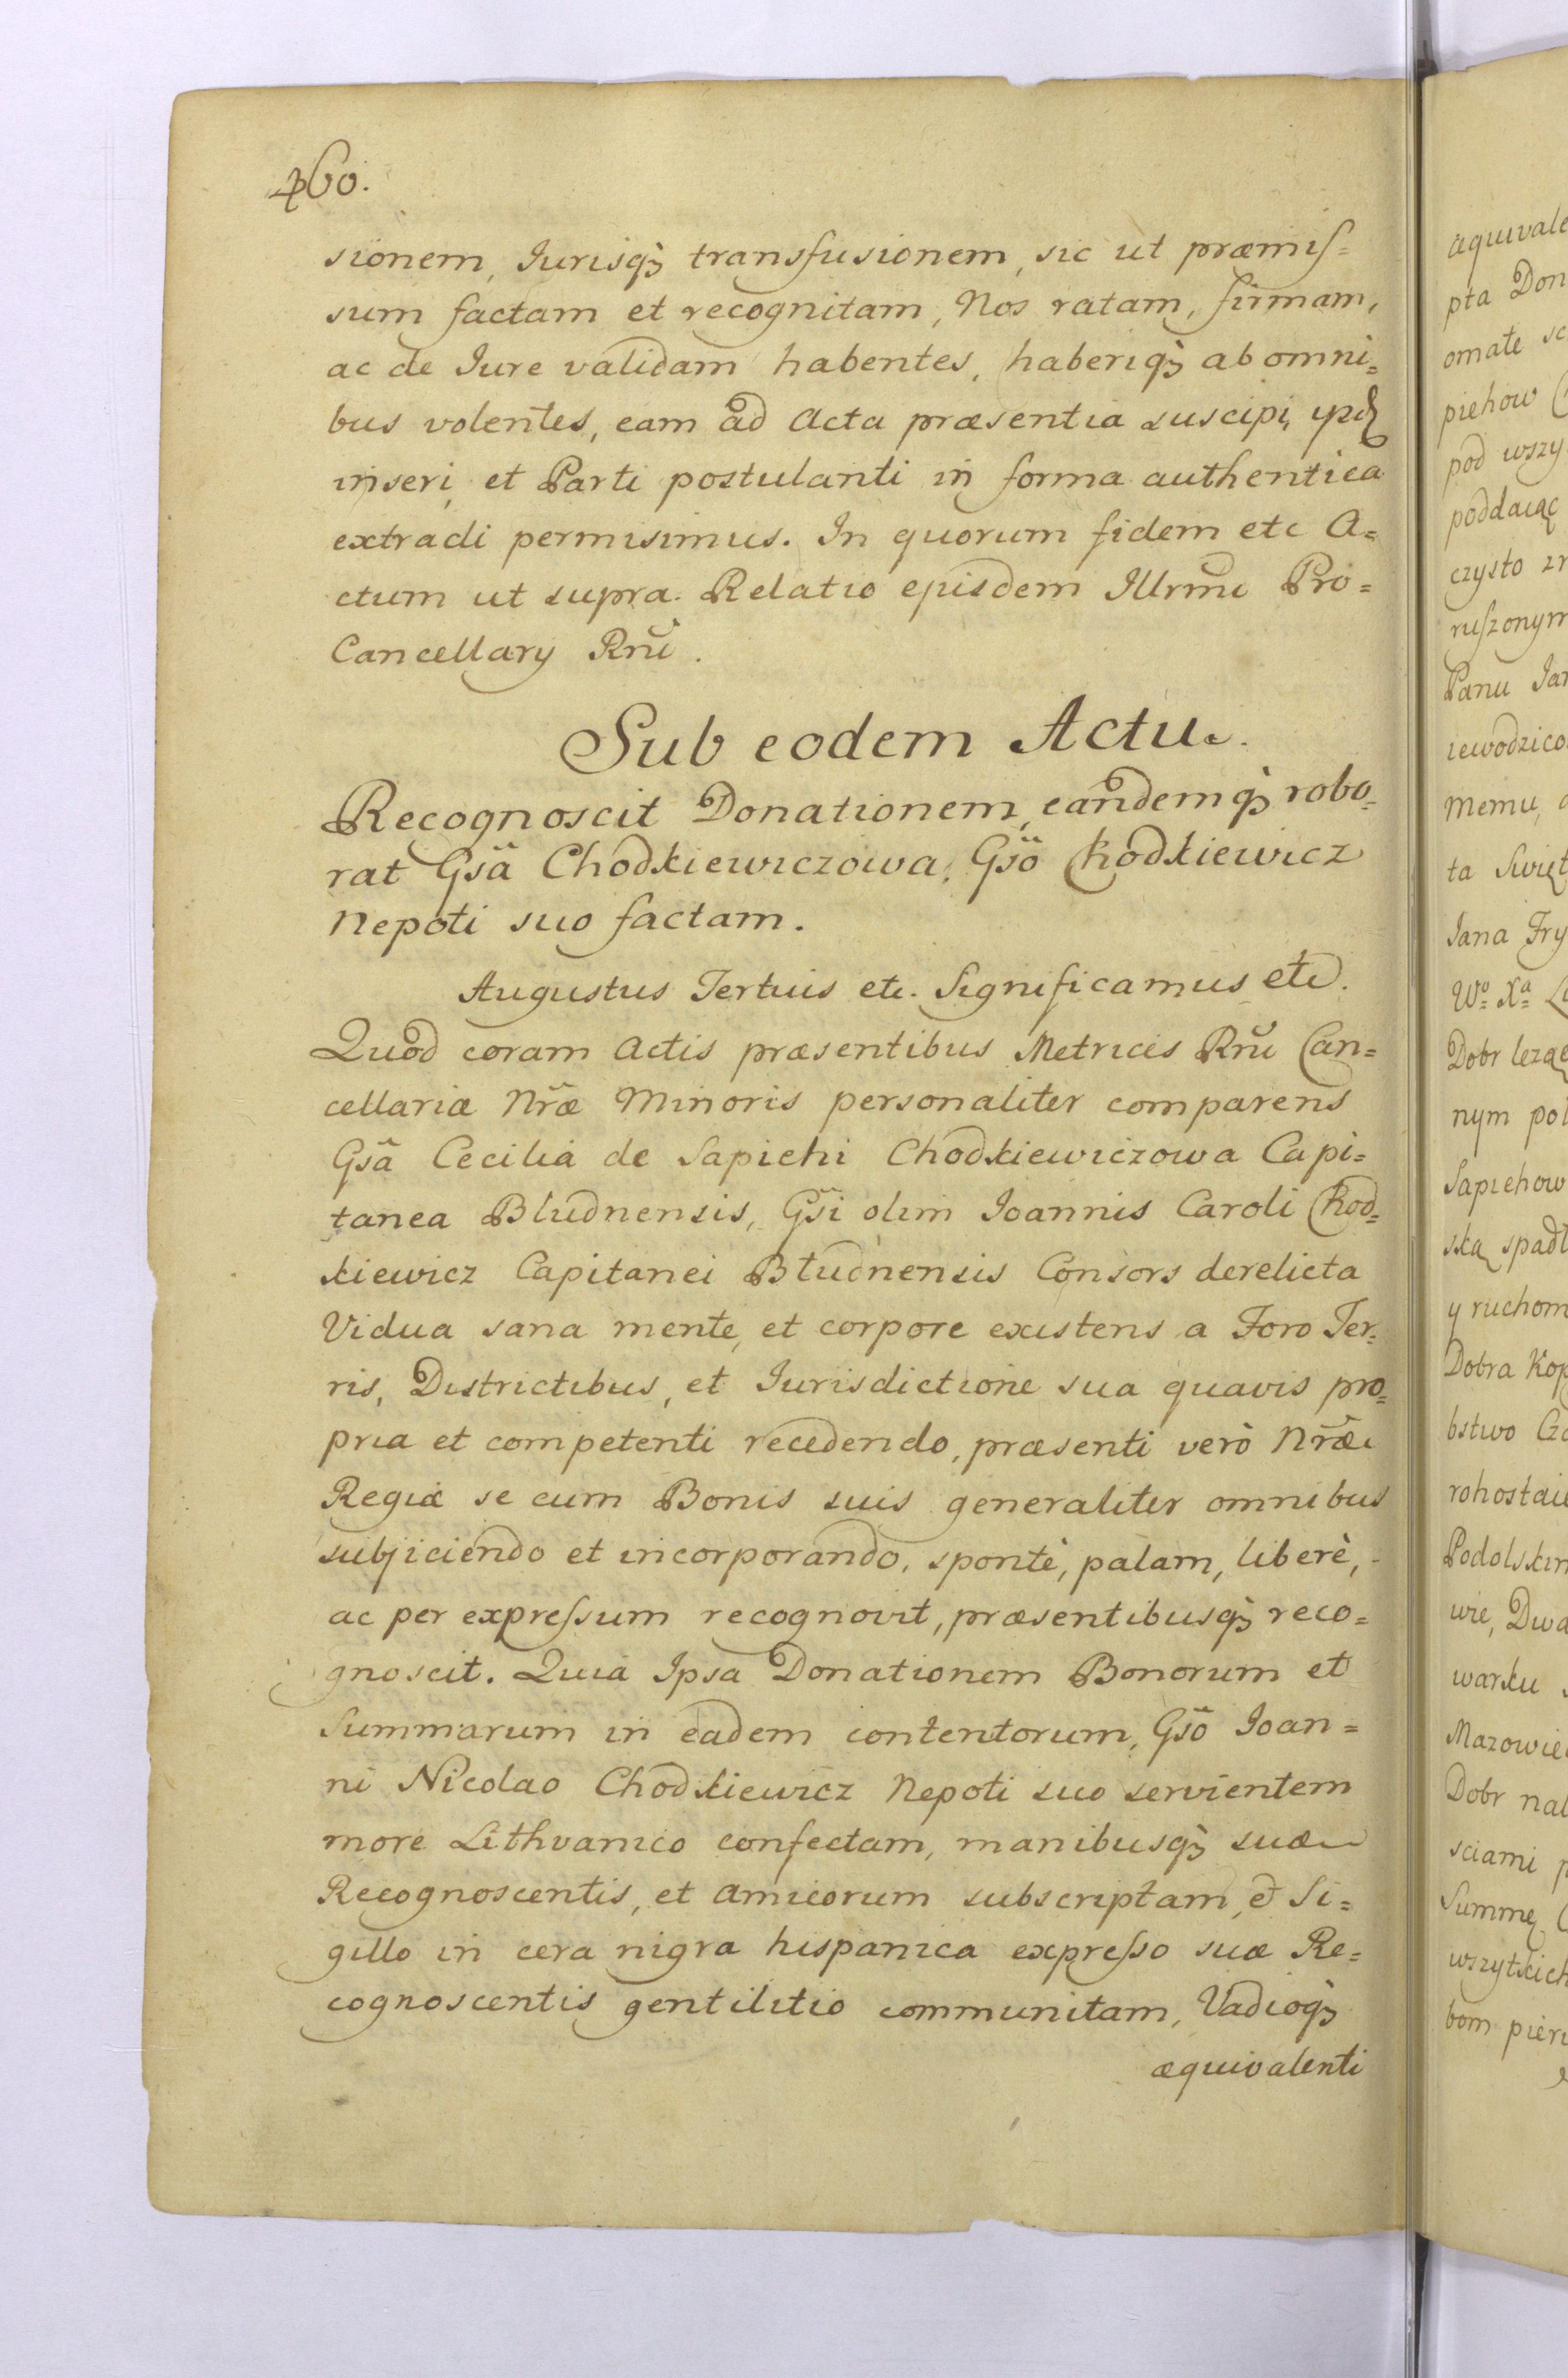 460.
sionem, Iurisq3 transfusionem, sic ut præmis=
sum factam et recognitam, Nos ratam, firmam,
ac de Iure validam habentes, haberiq3 ab omni=
bus volentes, eam ad Acta præsentia suscipi,
inseri, et Parti postulanti in forma authentica
extradi permisimus. In quorum fidem etc A=
ctum ut supra. Relatio ejusdem Illrmi Pro=
Cancellary Rñi.
Sub eodem Actu.
Recognoscit Donationem, eandemq3 robo=
rat Gsã Chodkiewiczowa, Gsõ Chodkiewicz
Nepoti suo factam.
Augustus Tertius etc. Significamus etc.
Quod coram Actis præsentibus Metrices Rñi Can=
cellariæ Nræ Minoris personaliter comparens
Gsã Cecilia de Sapiehi Chodkiewiczowa Capi=
tanea Bludnensis, Gsi olim Ioannis Caroli Chod=
kiewicz Capitanei Błudnensis Consors derelicta
Vidua sana mente, et corpore existens a Foro Ter=
ris, Districtibus, et Iurisdictione sua quavis pro=
pria et competenti recedendo, præsenti verò Nræ
Regiæ se cum Bonis suis generaliter omnibus
subjiciendo et incorporando, spontè, palam, liberè,
ac per expressum recognovit, præsentibusq3 reco=
gnoscit. Quia Ipsa Donationem Bonorum et
Summarum in eadem contentorum, Gsõ Ioan=
ni Nicolao Chodkiewicz Nepoti suo servientem
more Lithvanico confectam, manibusq3 suæ
Recognoscentis, et amicorum subscriptam, et Si=
gillo in cera nigra hispanica expresso suæ Re=
cognoscentis gentilitio communitam, Vadioq3
æquivalenti
æquivale
pta Don
omate sc
piehow
pod wszy
poddaiąc
czysto zr
ruszonym
Panu Ian
iewodzico
Memu,
ta Swięt
Iana Fry
Wo= Xa=
Dobr leżąc
nym pol
Sapiehow
ską spadł
y ruchom
Dobra Kop
bstwo Cza
rohostaie
Podolskim
wie, Dwa
warku
Mazowie
Dobr nal
sciami p
Summę
wszytkich
bom pierw